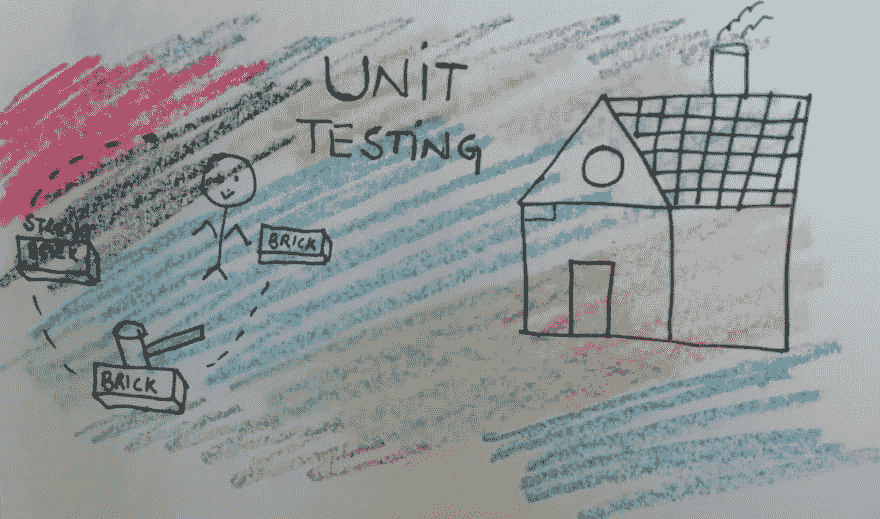 UNIT
TESTING
BRICK
BRICK
BRICK